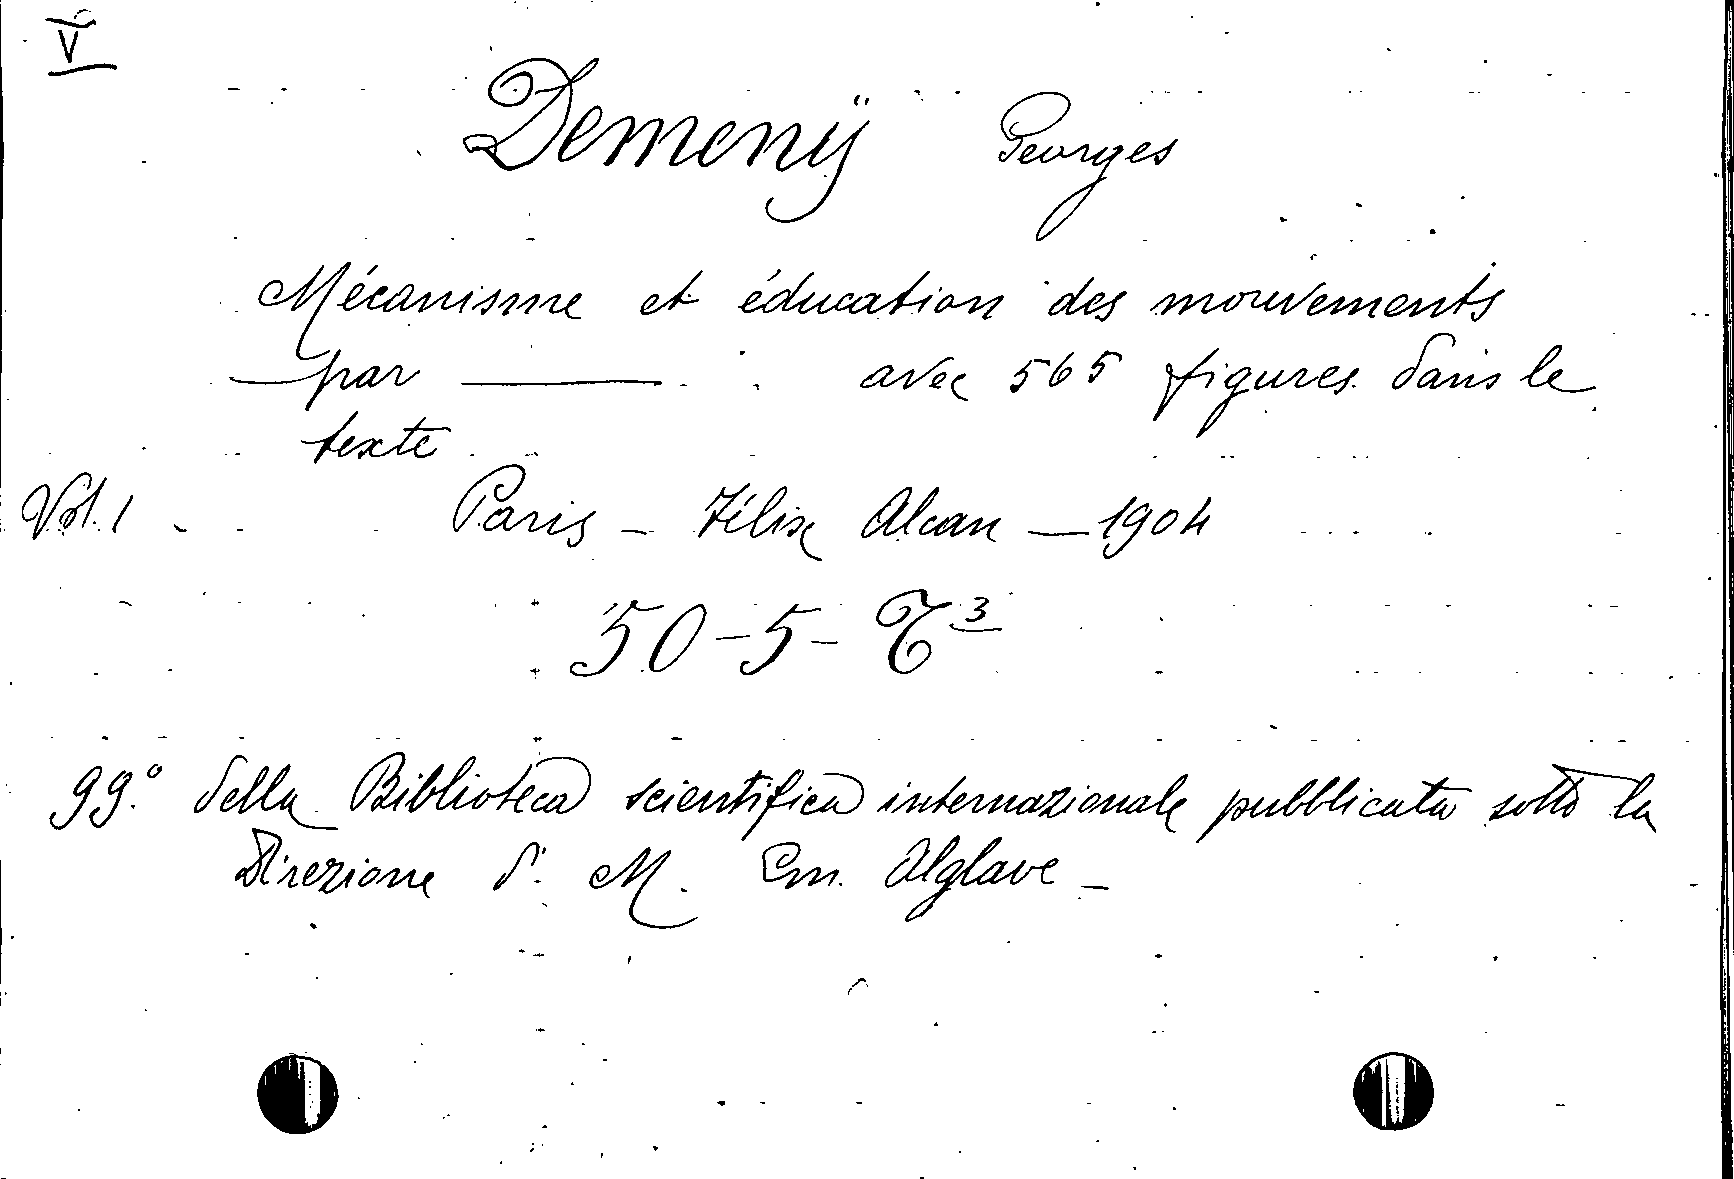 V
Demenÿ Georges
Mécanisme et éducation des mouvements
— par ——— avec 565 figures dans le
texte
Vol. 1 Paris — Félix Alcan — 1904
50-5- T³
99.° della Biblioteca scientifica internazionale pubblicata sotto la
Direzione d. M. Em. Alglave —